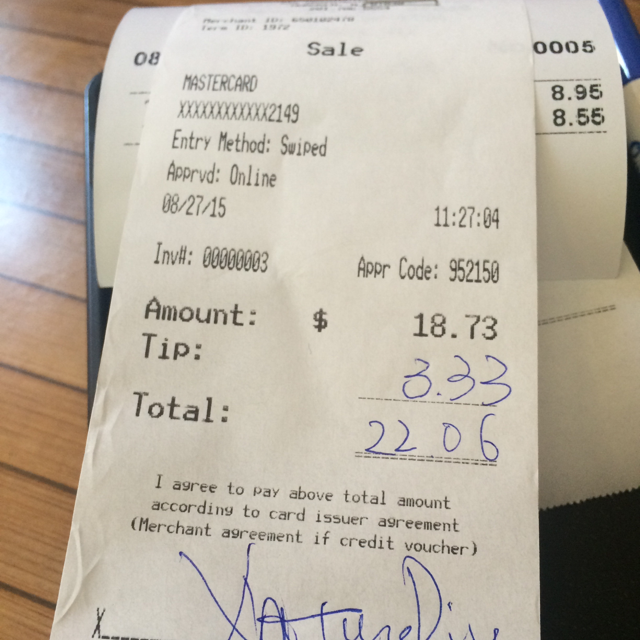 Merchant ID: 650102470
Term ID: 1972
Sale
08
0005
8.95
8.55
MASTERCARD
XXXXXXXXXXXX2149
Entry Method: Swiped
Apprvd: Online
08/27/15 11:27:04
Inv#: 00000003 Appr Code: 952150
Amount: $ 18.73
Tip: 3.33
Total: 22 06
I agree to pay above total amount
according to card issuer agreement
(Merchant agreement if credit voucher)
X